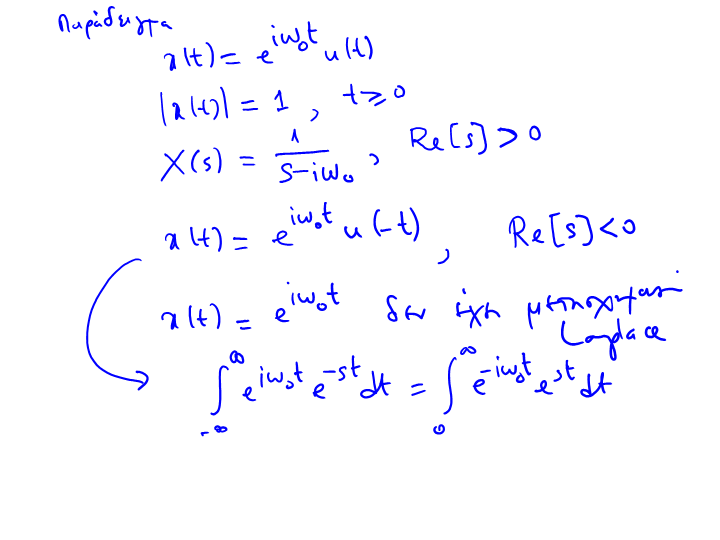 Παράδειγμα
x(t) = e^{iω₀t} u(t)
|x(t)| = 1 , t ≥ 0
X(s) = 1/(s-iω₀) , Re[s] > 0
x(t) = e^{iω₀t} u(-t) , Re[s] < 0
x(t) = e^{iω₀t} δεν έχει μετασχηματισμό
Laplace
∫_{-∞}^{∞} e^{iω₀t} e^{-st} dt = ∫_{0}^{∞} e^{-iω₀t} e^{st} dt